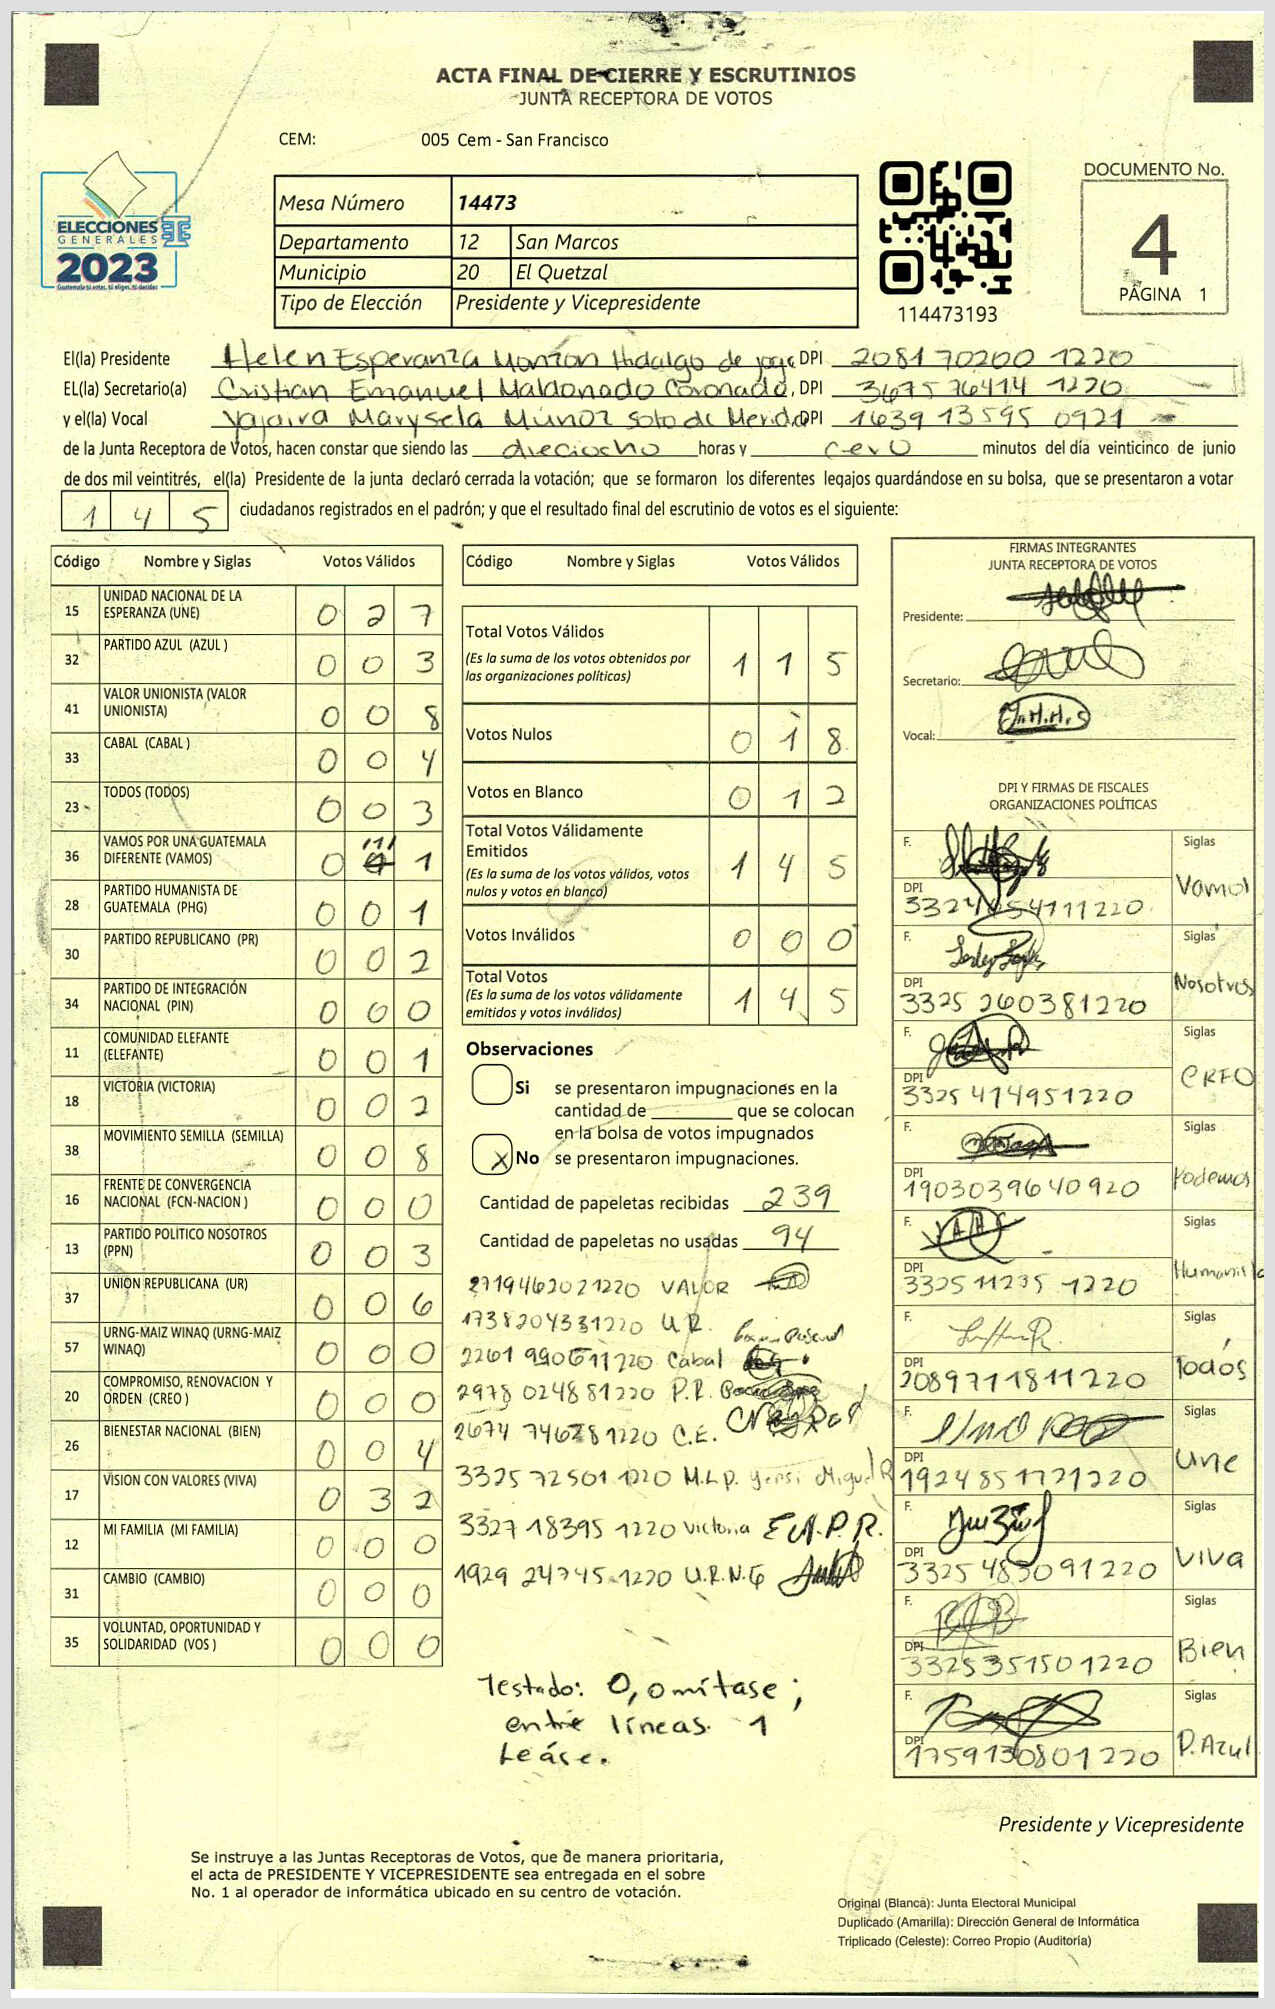 ACTA FINAL DE CIERRE Y ESCRUTINIOS
JUNTA RECEPTORA DE VOTOS
CEM: 005 Cem - San Francisco
ELECCIONES
GENERALES
2023
Guatemala tú votas, tú eliges, tú decides
Mesa Número 14473
Departamento 12 San Marcos
Municipio 20 El Quetzal
Tipo de Elección Presidente y Vicepresidente
114473193
DOCUMENTO No.
4
PÁGINA 1
El(la) Presidente Helen Esperanza Monzon Hidalgo de DPI 208170200 1220
EL(la) Secretario(a) Cristian Emanuel Maldonado Coronado, DPI 367576414 1220
y el(la) Vocal Yajaira Marysela Múnoz Soto de DPI 163913595 0921
de la Junta Receptora de Votos, hacen constar que siendo las dieciocho horas y cero minutos del día veinticinco de junio
de dos mil veintitrés, el(la) Presidente de la junta declaró cerrada la votación; que se formaron los diferentes legajos guardándose en su bolsa, que se presentaron a votar
1 4 5 ciudadanos registrados en el padrón; y que el resultado final del escrutinio de votos es el siguiente:
Código Nombre y Siglas Votos Válidos
15 UNIDAD NACIONAL DE LA ESPERANZA (UNE) 0 2 7
32 PARTIDO AZUL (AZUL ) 0 0 3
41 VALOR UNIONISTA (VALOR UNIONISTA) 0 0 8
33 CABAL (CABAL ) 0 0 4
23 TODOS (TODOS) 0 0 3
36 VAMOS POR UNA GUATEMALA DIFERENTE (VAMOS) 0 1 1
28 PARTIDO HUMANISTA DE GUATEMALA (PHG) 0 0 1
30 PARTIDO REPUBLICANO (PR) 0 0 2
34 PARTIDO DE INTEGRACIÓN NACIONAL (PIN) 0 0 0
11 COMUNIDAD ELEFANTE (ELEFANTE) 0 0 1
18 VICTORIA (VICTORIA) 0 0 2
38 MOVIMIENTO SEMILLA (SEMILLA) 0 0 8
16 FRENTE DE CONVERGENCIA NACIONAL (FCN-NACION ) 0 0 0
13 PARTIDO POLITICO NOSOTROS (PPN) 0 0 3
37 UNION REPUBLICANA (UR) 0 0 6
57 URNG-MAIZ WINAQ (URNG-MAIZ WINAQ) 0 0 0
20 COMPROMISO, RENOVACION Y ORDEN (CREO ) 0 0 0
26 BIENESTAR NACIONAL (BIEN) 0 0 4
17 VISION CON VALORES (VIVA) 0 3 2
12 MI FAMILIA (MI FAMILIA) 0 0 0
31 CAMBIO (CAMBIO) 0 0 0
35 VOLUNTAD, OPORTUNIDAD Y SOLIDARIDAD (VOS ) 0 0 0
Código Nombre y Siglas Votos Válidos
Total Votos Válidos 1 1 5
(Es la suma de los votos obtenidos por
las organizaciones políticas)
Votos Nulos 0 1 8
Votos en Blanco 0 1 2
Total Votos Válidamente
Emitidos 1 4 5
(Es la suma de los votos válidos, votos
nulos y votos en blanco)
Votos Inválidos 0 0 0
Total Votos 1 4 5
(Es la suma de los votos válidamente
emitidos y votos inválidos)
Observaciones
Si se presentaron impugnaciones en la
cantidad de ________ que se colocan
en la bolsa de votos impugnados
X No se presentaron impugnaciones.
Cantidad de papeletas recibidas 239
Cantidad de papeletas no usadas 94
2719462021220 VALOR
1738204331220 U.R.
1220 Cabal
2978 024881220 P.R.
1220 C.E.
3325 72501 1220 M.L.P. Yensi Miguel R
3327 18395 1220 Victoria E.N.P.R.
1929 24745 1220 U.R.N.G
Testado: 0, omítase;
entre líneas. 1
Leáse.
FIRMAS INTEGRANTES
JUNTA RECEPTORA DE VOTOS
Presidente:
Secretario:
Vocal: Y.M.M.S
DPI Y FIRMAS DE FISCALES
ORGANIZACIONES POLÍTICAS
F. Siglas Vamos
DPI
F. Siglas Nosotros
DPI 3325 260381220
F. Siglas CREO
DPI 3325 414951220
F. Siglas Podemos
DPI 1903039640920
F. Siglas Humanista
DPI 332511235 1220
F. Siglas Todos
DPI 2089711811220
F. Siglas Une
DPI 1924851721220
F. Siglas Viva
DPI 3325483091220
F. Siglas Bien
DPI 3325351501220
F. Siglas P. Azul
DPI 1759130801220
Presidente y Vicepresidente
Se instruye a las Juntas Receptoras de Votos, que de manera prioritaria,
el acta de PRESIDENTE Y VICEPRESIDENTE sea entregada en el sobre
No. 1 al operador de informática ubicado en su centro de votación.
Original (Blanca): Junta Electoral Municipal
Duplicado (Amarilla): Dirección General de Informática
Triplicado (Celeste): Correo Propio (Auditoría)